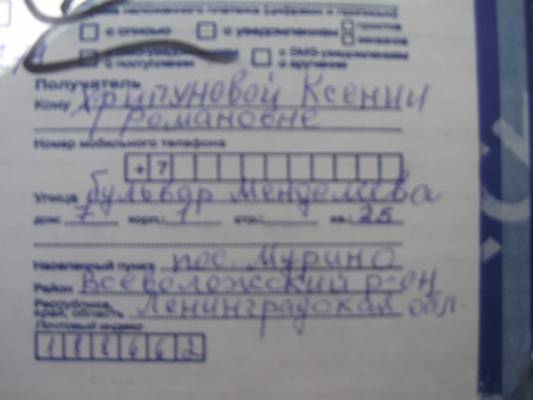 наложенного платежа (цифрами и прописью)
с описью с уведомлением простое
заказное
с уведомлением с SMS-уведомлением
о поступлении о вручении
Получатель
Кому Хрипуновой Ксении
Романовне
Номер мобильного телефона
+7
Улица бульвар Менделеева
дом: 7 корп.: 1 стр.: кв.: 25
Населенный пункт пос. Мурино
Район Всеволожский р-он
Республика,
край, область Ленинградская обл.
Почтовый индекс
188662